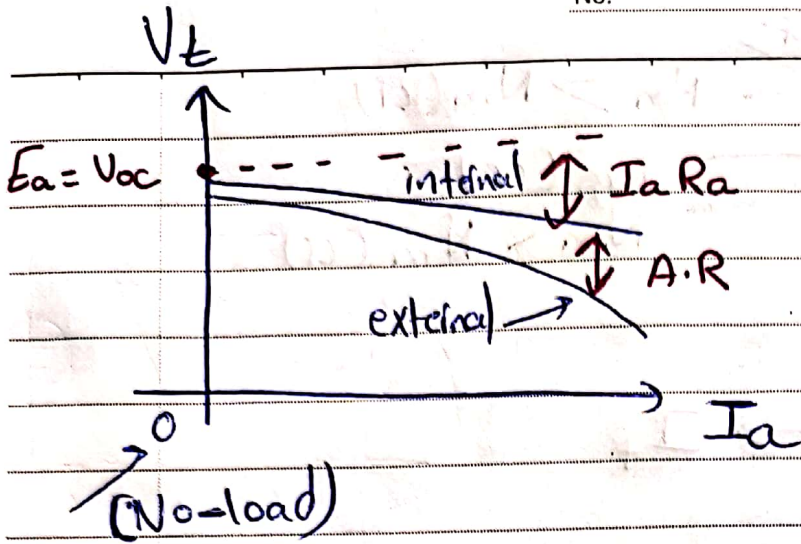 No.
Vt
Ea = Voc
internal
Ia Ra
A.R
external
0
Ia
(No-load)